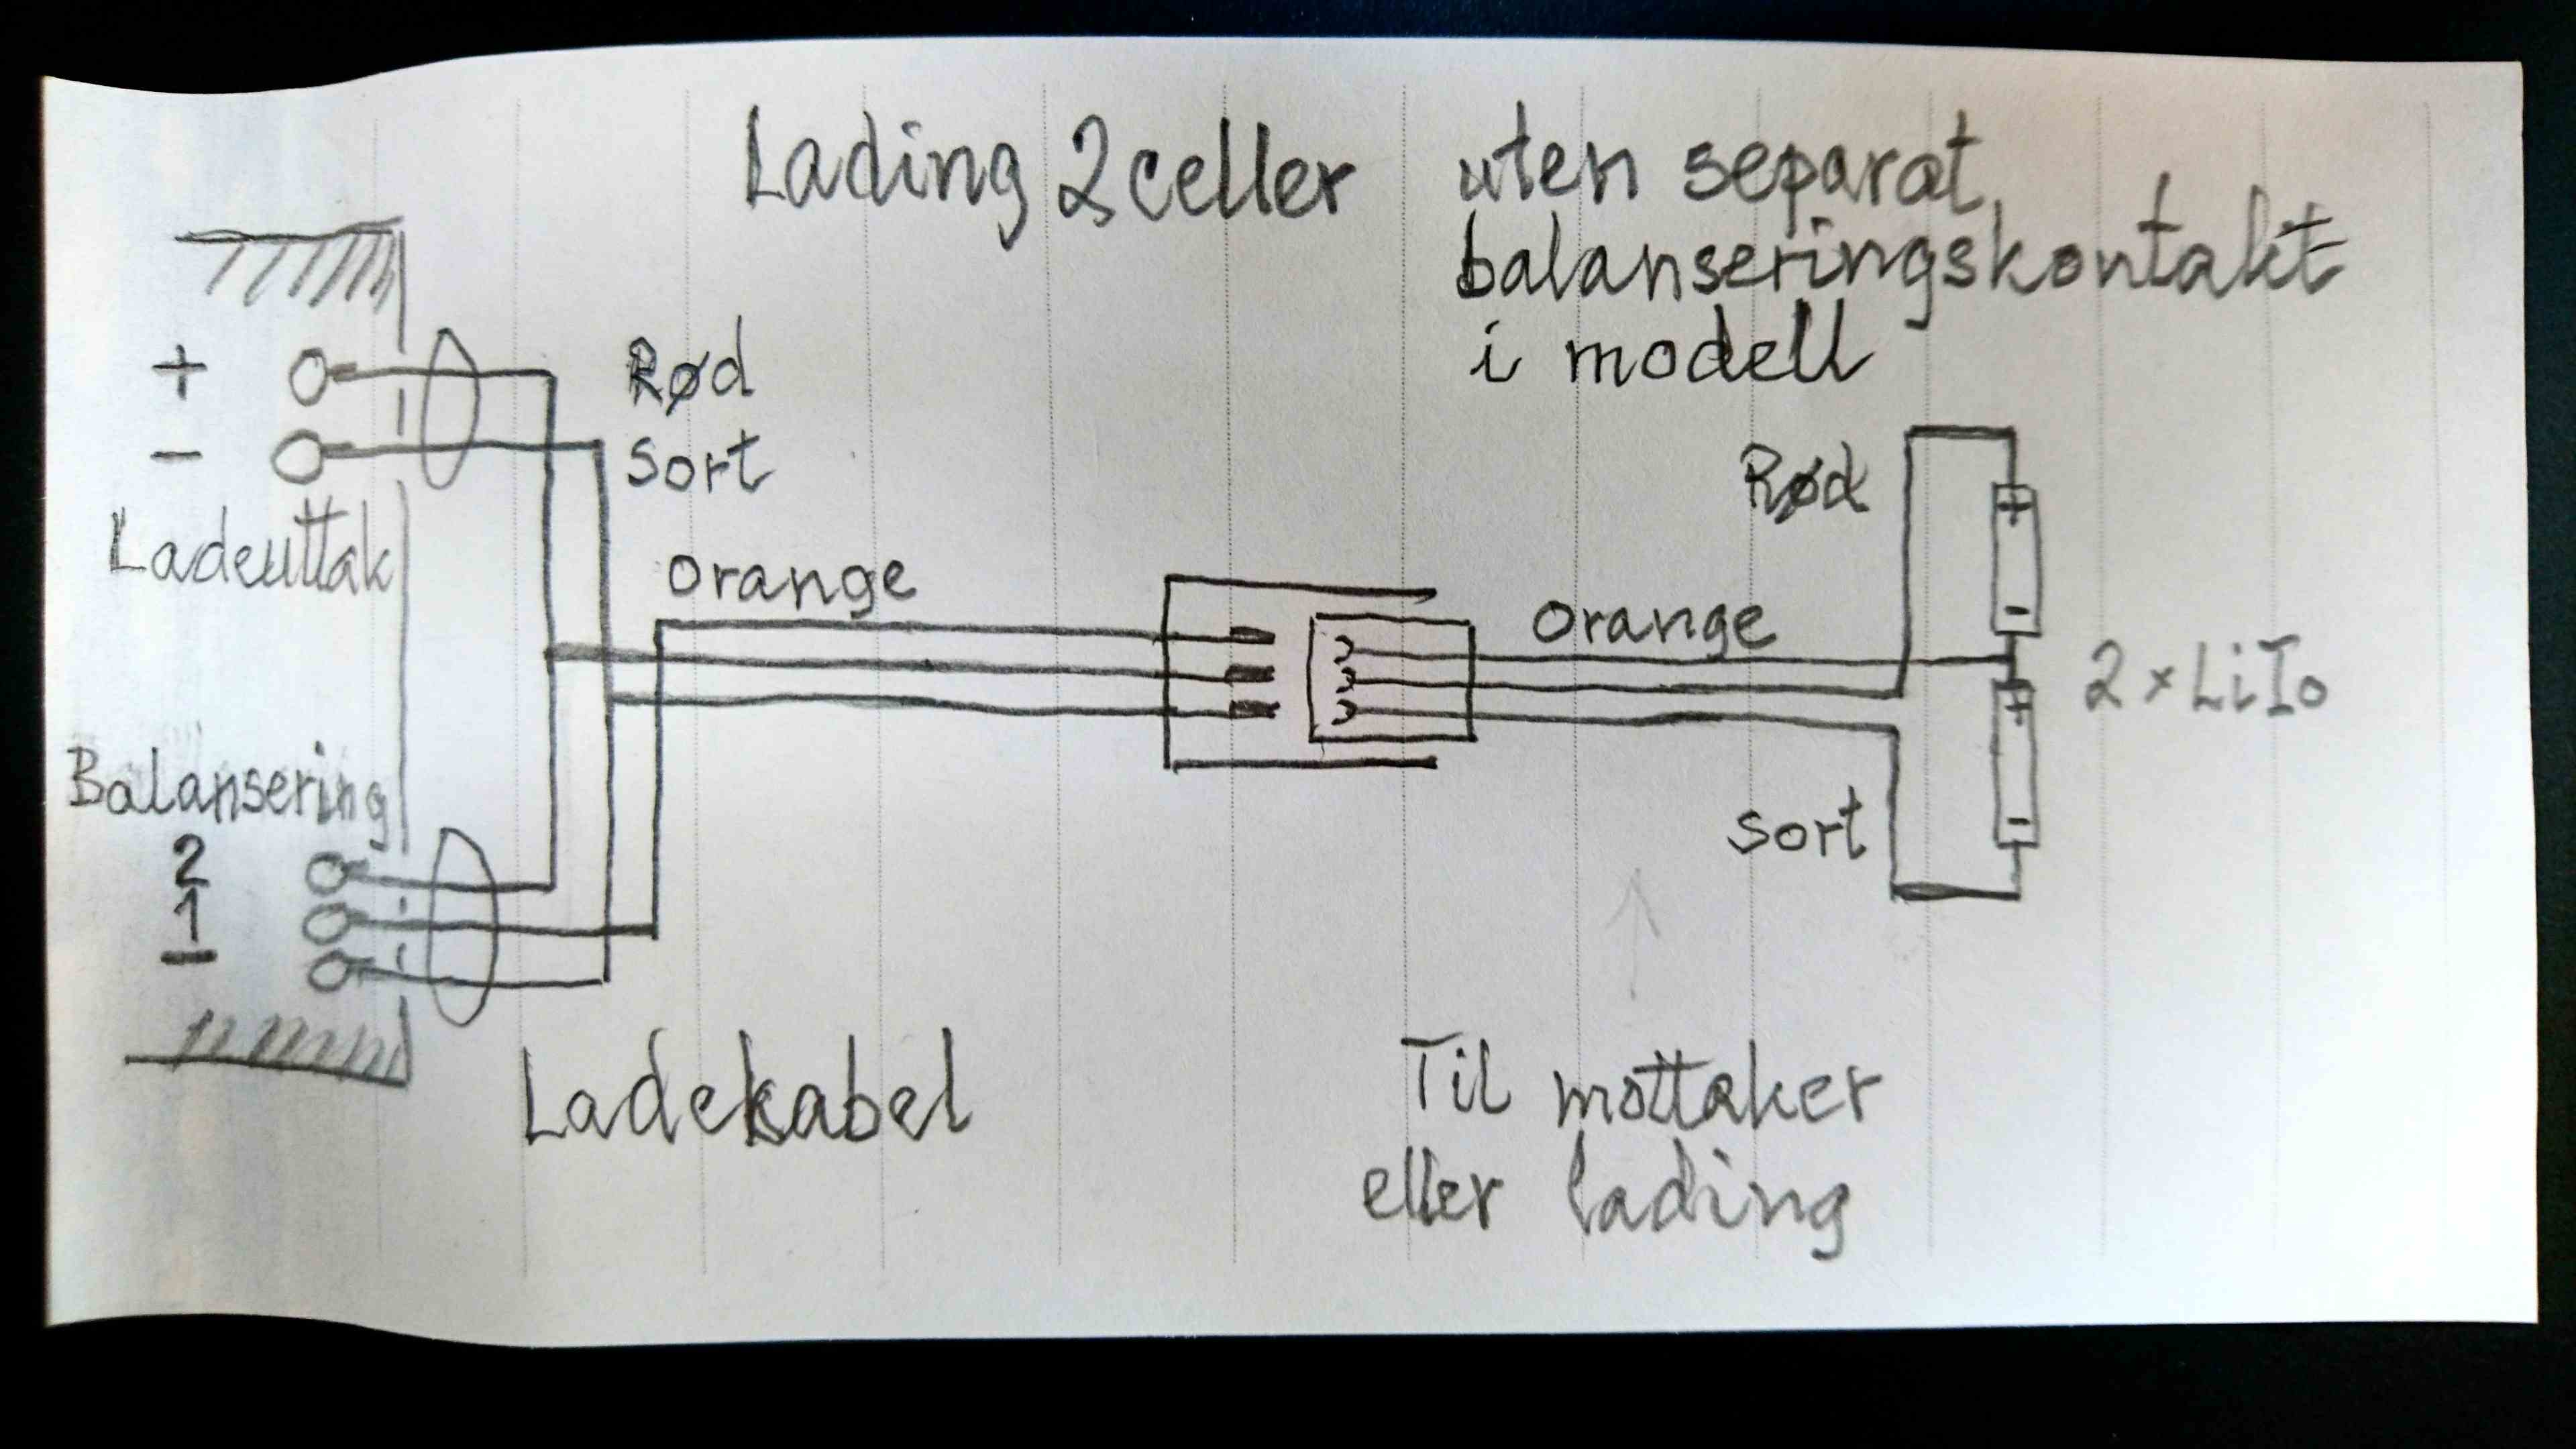 Lading 2 celler uten separat
balanseringskontakt
i modell
+
Rød
-
Sort
Ladeuttak
Orange
Balansering
2
1
-
Ladekabel
Rød
+
-
Orange
+
2 x LiIo
-
Sort
Til mottaker
eller lading